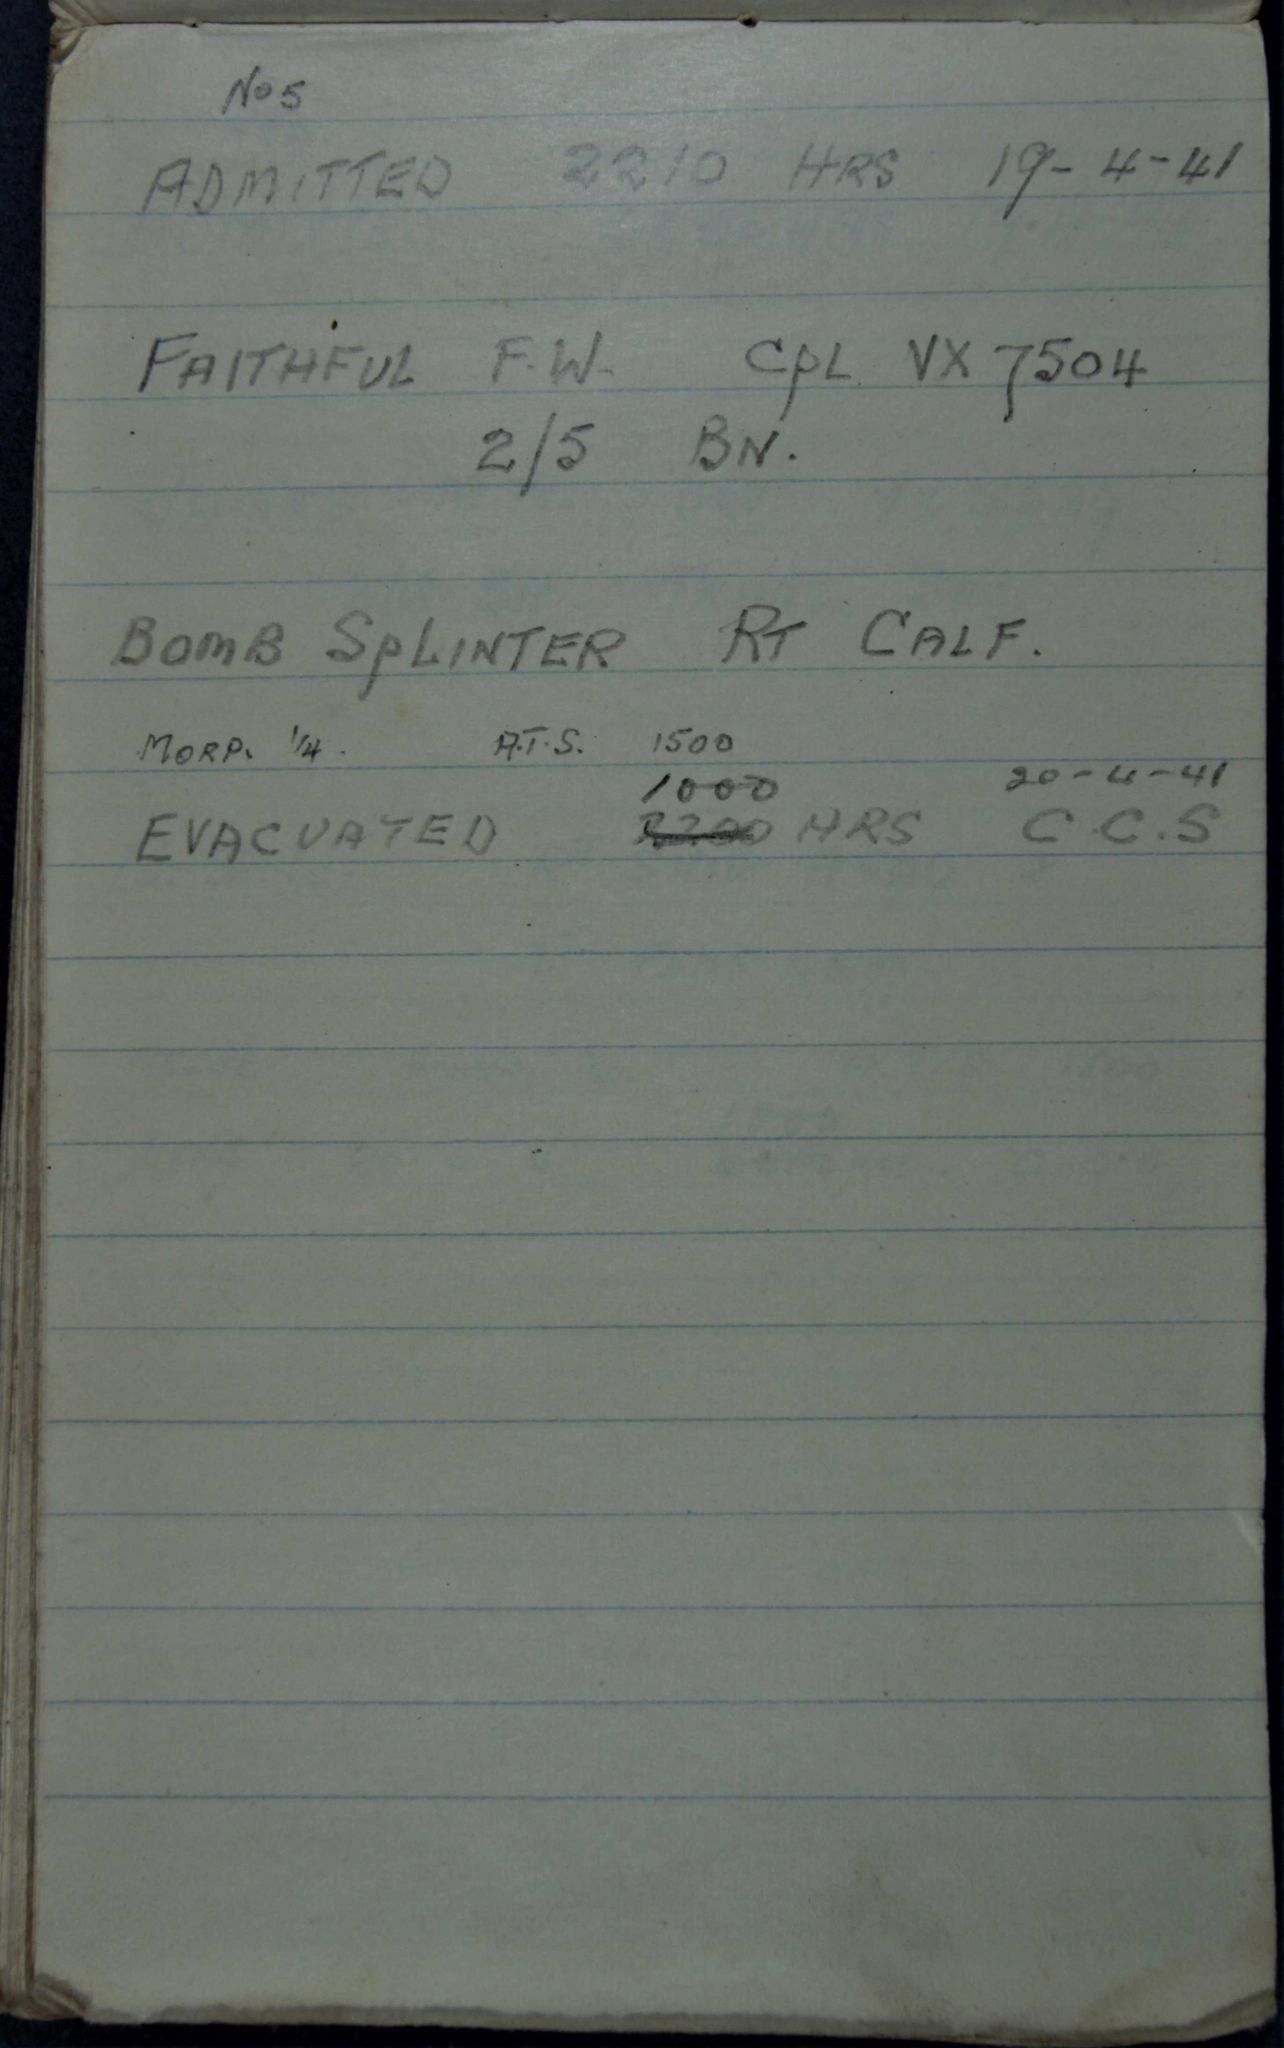 No 5
ADMITTED 2210 HRS 19-4-41
FAITHFUL F.W. CPL VX 7504
2/5 BN.
BOMB SPLINTER RT CALF.
MORP. 1/4. A.T.S. 1500
1000 20-4-41
EVACUATED HRS C.C.S